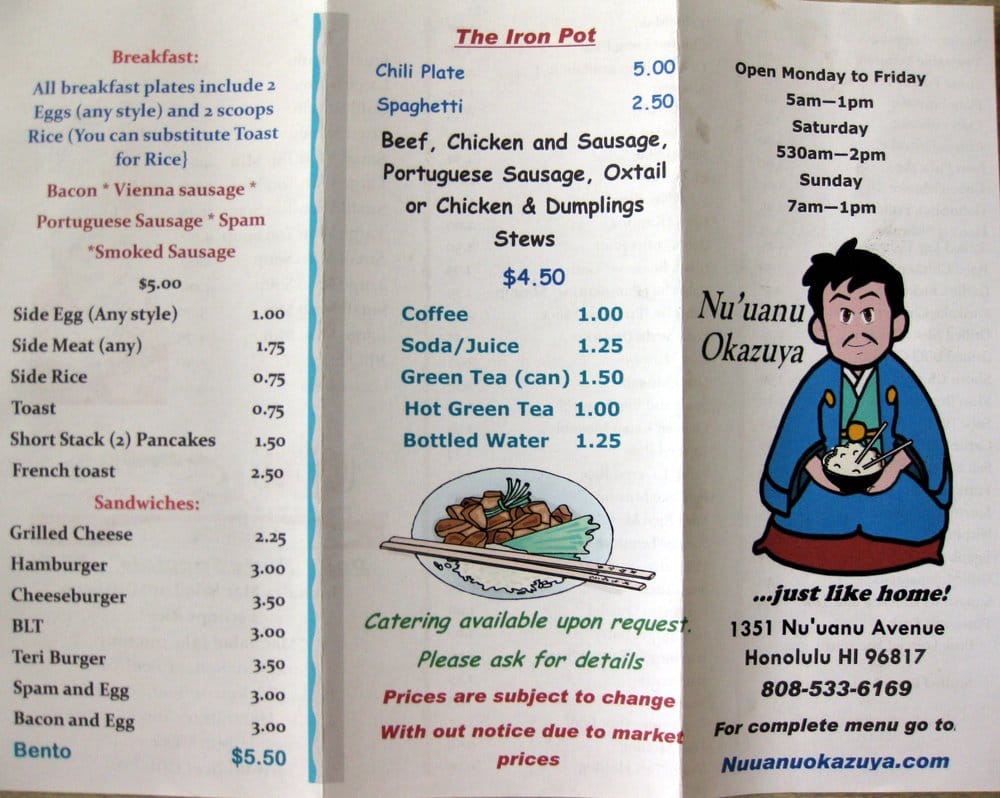 Breakfast:
All breakfast plates include 2
Eggs (any style) and 2 scoops
Rice (You can substitute Toast
for Rice}
Bacon * Vienna sausage *
Portuguese Sausage * Spam
*Smoked Sausage
$5.00
Side Egg (Any style) 1.00
Side Meat (any) 1.75
Side Rice 0.75
Toast 0.75
Short Stack (2) Pancakes 1.50
French toast 2.50
Sandwiches:
Grilled Cheese 2.25
Hamburger 3.00
Cheeseburger 3.50
BLT 3.00
Teri Burger 3.50
Spam and Egg 3.00
Bacon and Egg 3.00
Bento $5.50
The Iron Pot
Chili Plate 5.00
Spaghetti 2.50
Beef, Chicken and Sausage,
Portuguese Sausage, Oxtail
or Chicken & Dumplings
Stews
$4.50
Coffee 1.00
Soda/Juice 1.25
Green Tea (can) 1.50
Hot Green Tea 1.00
Bottled Water 1.25
Catering available upon request.
Please ask for details
Prices are subject to change
With out notice due to market
prices
Open Monday to Friday
5am—1pm
Saturday
530am—2pm
Sunday
7am—1pm
Nu'uanu
Okazuya
...just like home!
1351 Nu'uanu Avenue
Honolulu HI 96817
808-533-6169
For complete menu go to.
Nuuanuokazuya.com